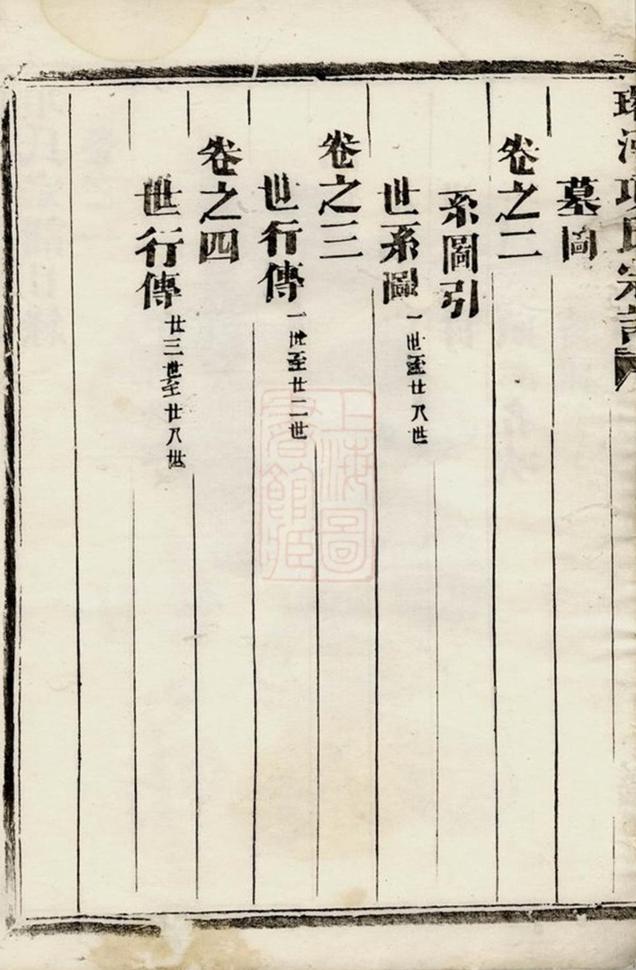 墓圖
卷之二
系圖引
世系圖 一世至廿八世
卷之三
世行傳 一世至廿二世
卷之四
世行傳 廿三世至廿八世
上海圖
書館藏